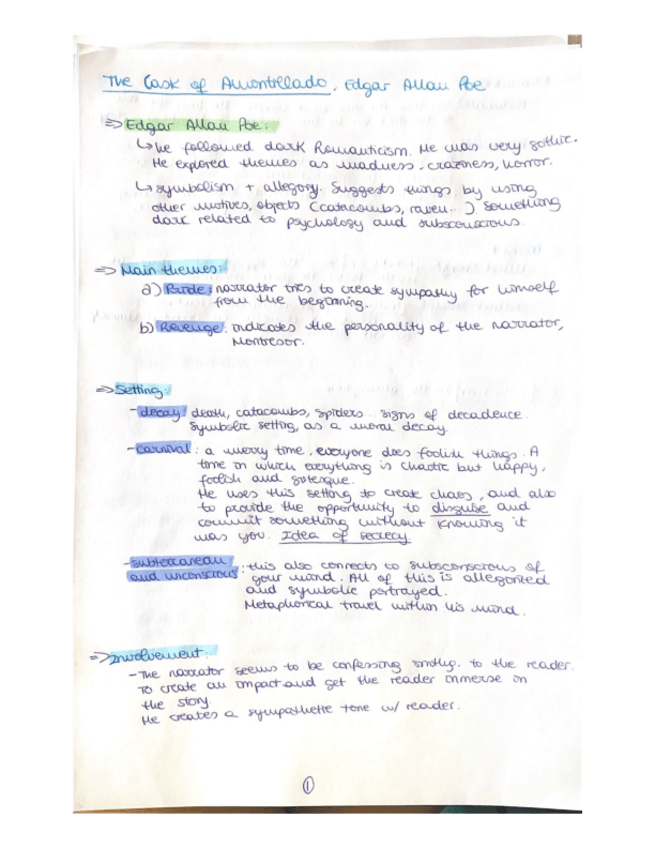 The Cask of Amontillado, Edgar Allan Poe
=> Edgar Allan Poe:
↳ he followed dark Romanticism. He was very gothic.
He explored themes as madness, craziness, horror.
↳ symbolism + allegory. Suggests things by using
other motives, objects (catacombs, raven...). Something
dark related to psychology and subsconscious.
=> Main themes:
a) Pride: narrator tries to create sympathy for himself
from the beginning.
b) Revenge: indicates the personality of the narrator,
Montresor.
=> Setting:
- decay: death, catacombs, spiders... signs of decadence.
Symbolic setting, as a moral decay.
- carnival: a merry time, everyone does foolish things. A
time in which everything is chaotic but happy,
foolish and grotesque.
He uses this setting to create chaos, and also
to provide the opportunity to disguise and
commit something without knowing it
was you. Idea of secrecy
- subterranean
and unconscious: this also connects to subsconscious of
your mind. All of this is allegorized
and symbolic portrayed.
Metaphorical travel within his mind.
=> Involvement:
- The narrator seems to be confessing smthg. to the reader.
To create an impact and get the reader inmerse in
the story.
He creates a sympathetic tone w/ reader.
1